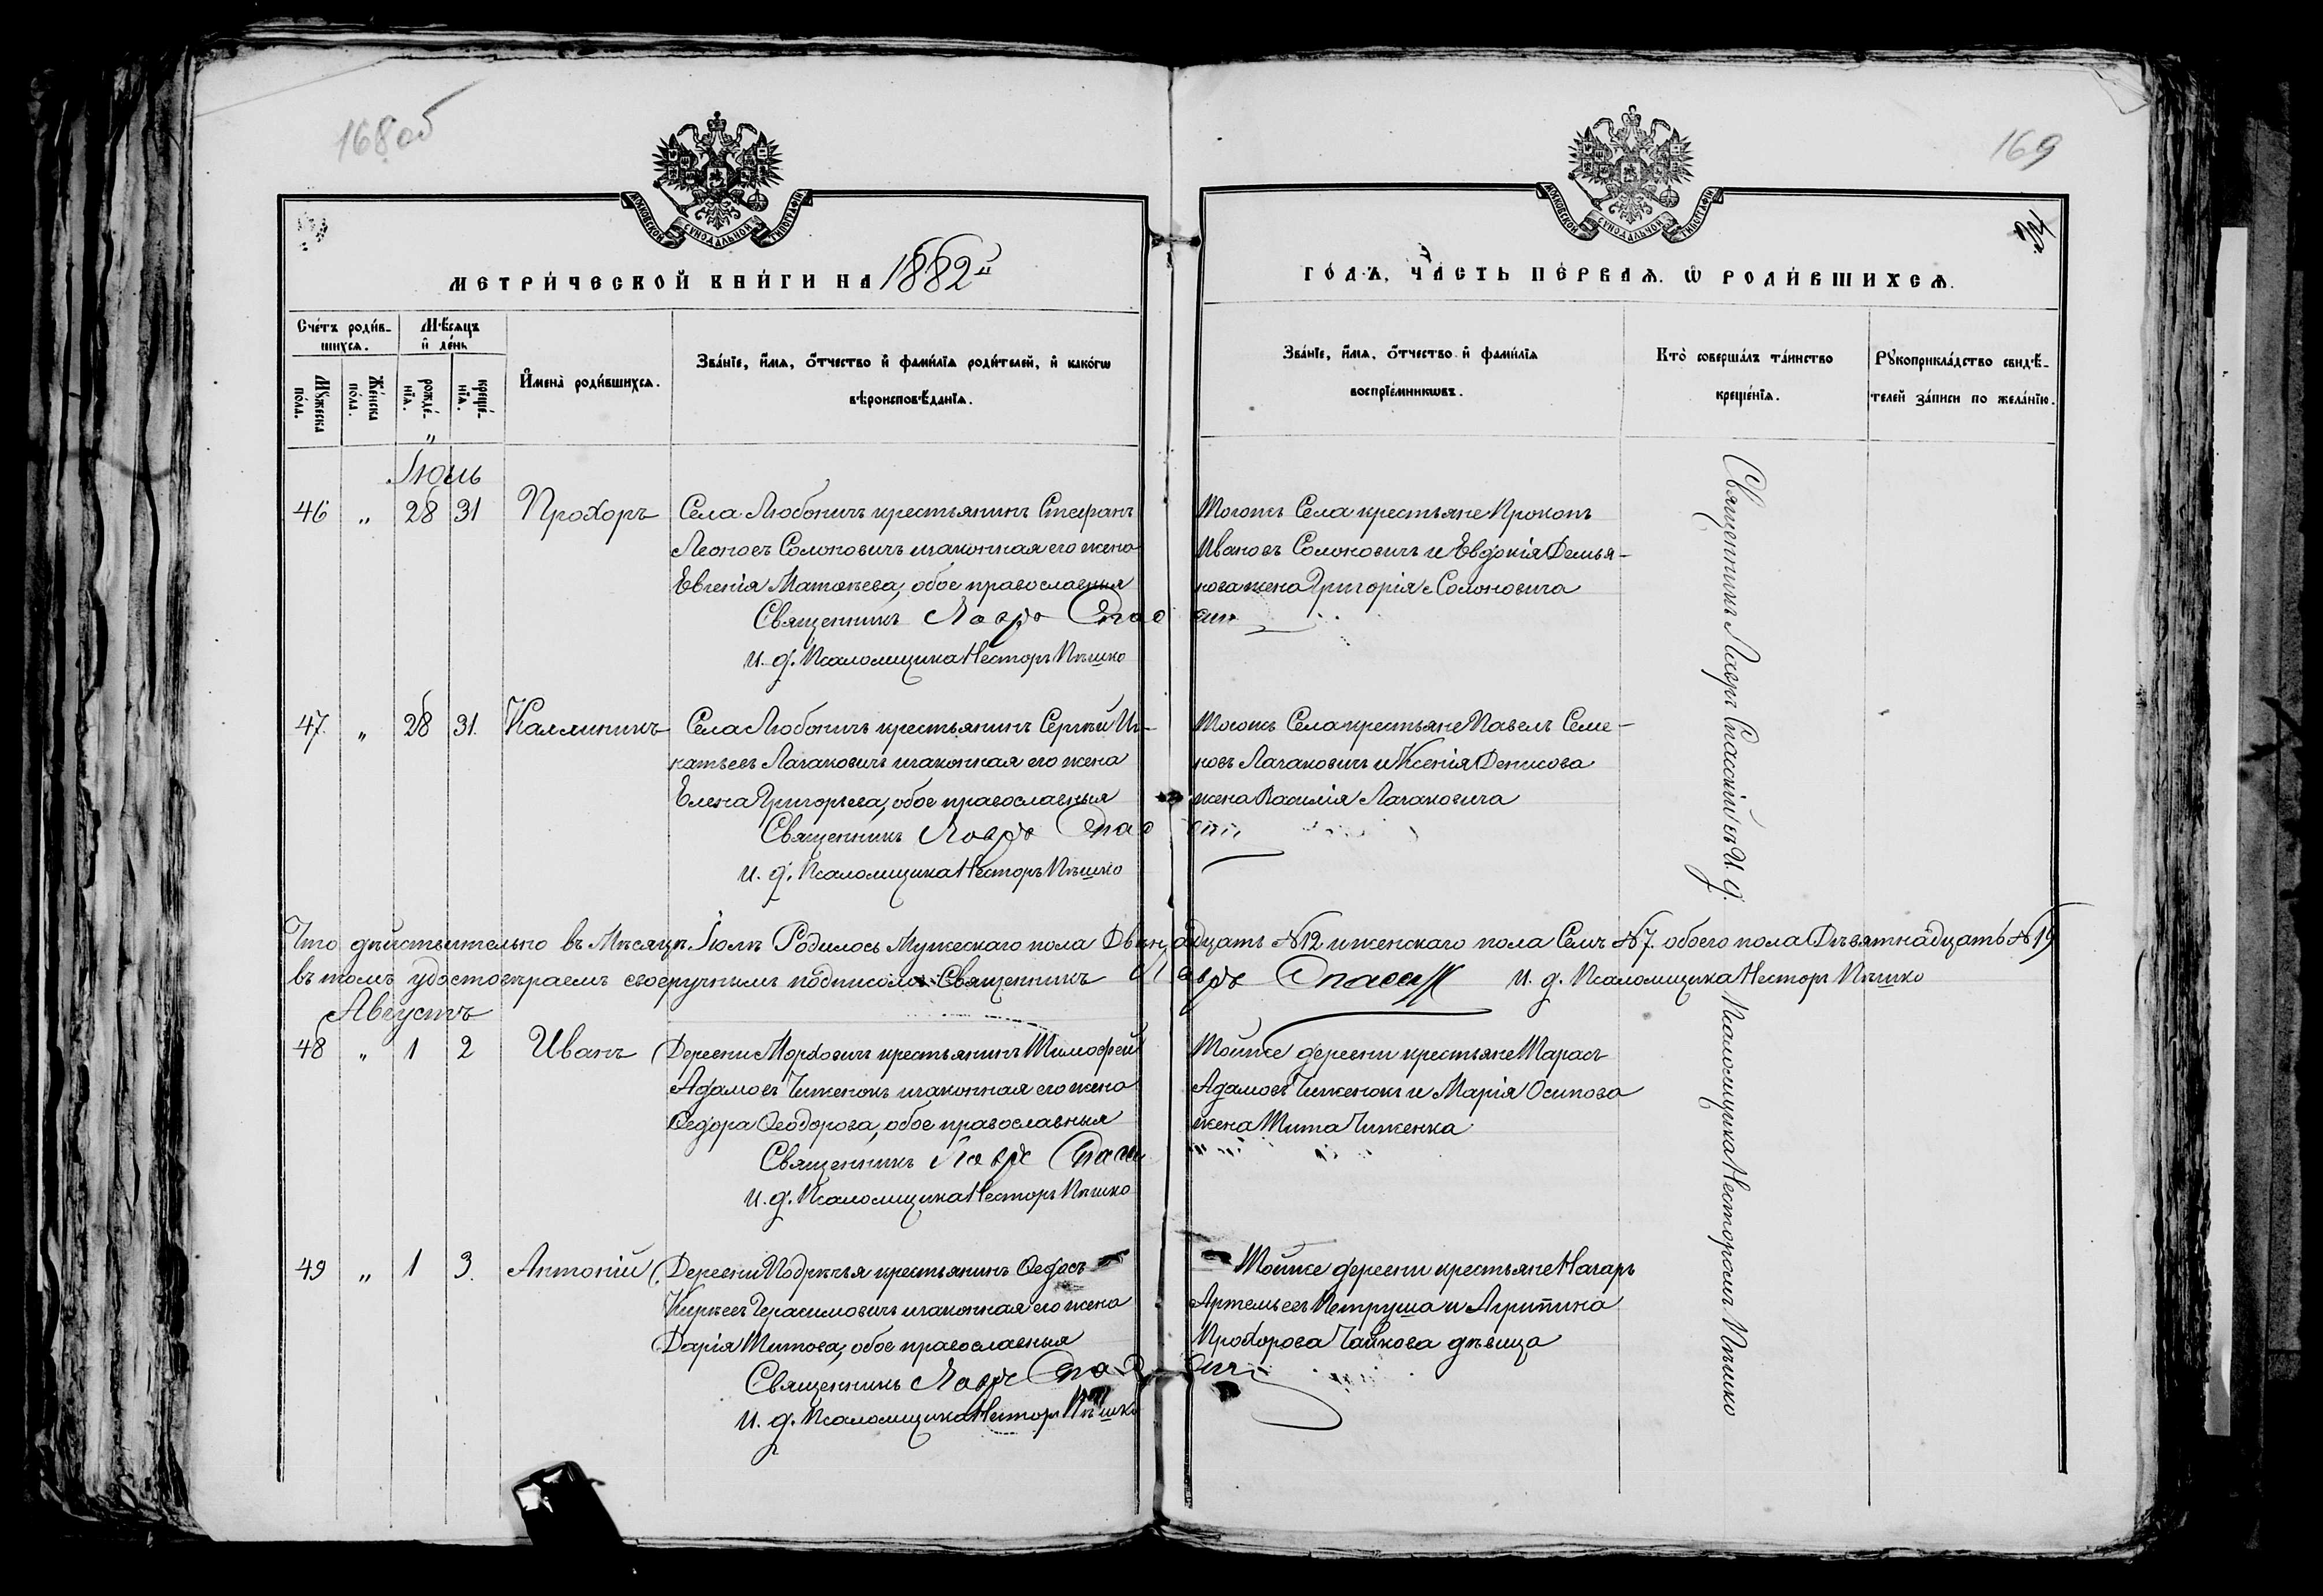 168об
169
34
МОСКОВСКОЙ СѴНОДАЛЬНОЙ ТИПОГРАФІИ
МОСКОВСКОЙ СѴНОДАЛЬНОЙ ТИПОГРАФІИ
МЕТРИ́ЧЕСКОЙ КНИ́ГИ НА 1882й
ГО́ДЪ, ЧА́СТЬ ПЕ́РВАѦ. Ѡ҆ РОДИ́ВШИХСѦ.
Сче́тъ роди́в-
шихсѧ.
Мѣ́сѧцъ
и҆ де́нь
Мꙋ́жеска
по́ла.
Же́нска
по́ла.
рожде́-
нїѧ.
креще́-
нїѧ.
И҆мена̀ роди́вшихсѧ.
Зва́нїе, и҆́мѧ, ѻ҆́тчество и҆ фами́лїѧ роди́телей, и҆ како́гѡ
вѣроисповѣ́данїѧ.
Зва́нїе, и҆́мѧ, ѻ҆́тчество и҆ фами́лїѧ
воспрїе́мникѡвъ.
Кто̀ соверша́лъ та́инство
креще́нїѧ.
Рꙋкоприкла́дство свидѣ́-
телей за́писи по жела́нїю.
Іюль
46 „ 28 31 Прохоръ Села Любоничъ крестьянинъ Стефанъ
Леоновъ Солоновичъ изаконная его жена
Евгенія Матѳѣева, обое православныя
Священникъ Лавръ Спас
И. д. Псаломщика Несторъ Пѣшко
Тогожъ Села крестьяне Прокопъ
Ивановъ Солоновичъ и Евдокія Демья-
нова жена Григорія Солоновича
47. „ 28 31. Каллиникъ Села Любоничъ крестьянинъ Сергѣй Иг-
натьевъ Лагаковичъ изаконная его жена
Елена Григорьева, обое православныя
Священникъ Лавръ Спас
И. д. Псаломщика Несторъ Пѣшко
Тогожъ Села крестьяне Павелъ Семе-
новъ Лагаковичъ и Ксенія Денисова
жена Василія Лагаковича
Что дѣйствительно въ Мѣсяцѣ Іюлѣ Родилось Мужескаго пола Двѣнадцать №12 и женскаго пола Семь №7. обоего пола Дѣвятнадцать №19
въ томъ удостовѣраемъ своеручнымъ подписомъ Священникъ Лавръ Спасскій И. д. Псаломщика Несторъ Пѣшко
Августъ
48 „ 1 2 Иванъ Деревни Морховичъ крестьянинъ Тимофей
Адамовъ Чиженокъ изаконная его жена
Ѳедора Ѳеодорова, обое православныя
Священникъ Лавръ Спасс
И. д. Псаломщика Несторъ Пѣшко
Тойже деревни крестьяне Тарасъ
Адамовъ Чиженокъ и Марія Осипова
жена Тита Чиженка
49 „ 1 3. Антоній Деревни Подрѣчья крестьянинъ Ѳедосъ
Кирѣевъ Герасимовичъ изаконная его жена
Дарія Титова, обое православныя
Священникъ Лавръ Спас
И. д. Псаломщика Несторъ Пѣшко
Тойже деревни крестьяне Назаръ
Артемьевъ Петруша и Агрипина
Прохорова Чайкова дѣвица
Священникъ Лавръ Спасскій съ И. д.
Псаломщика Несторомъ Пѣшко